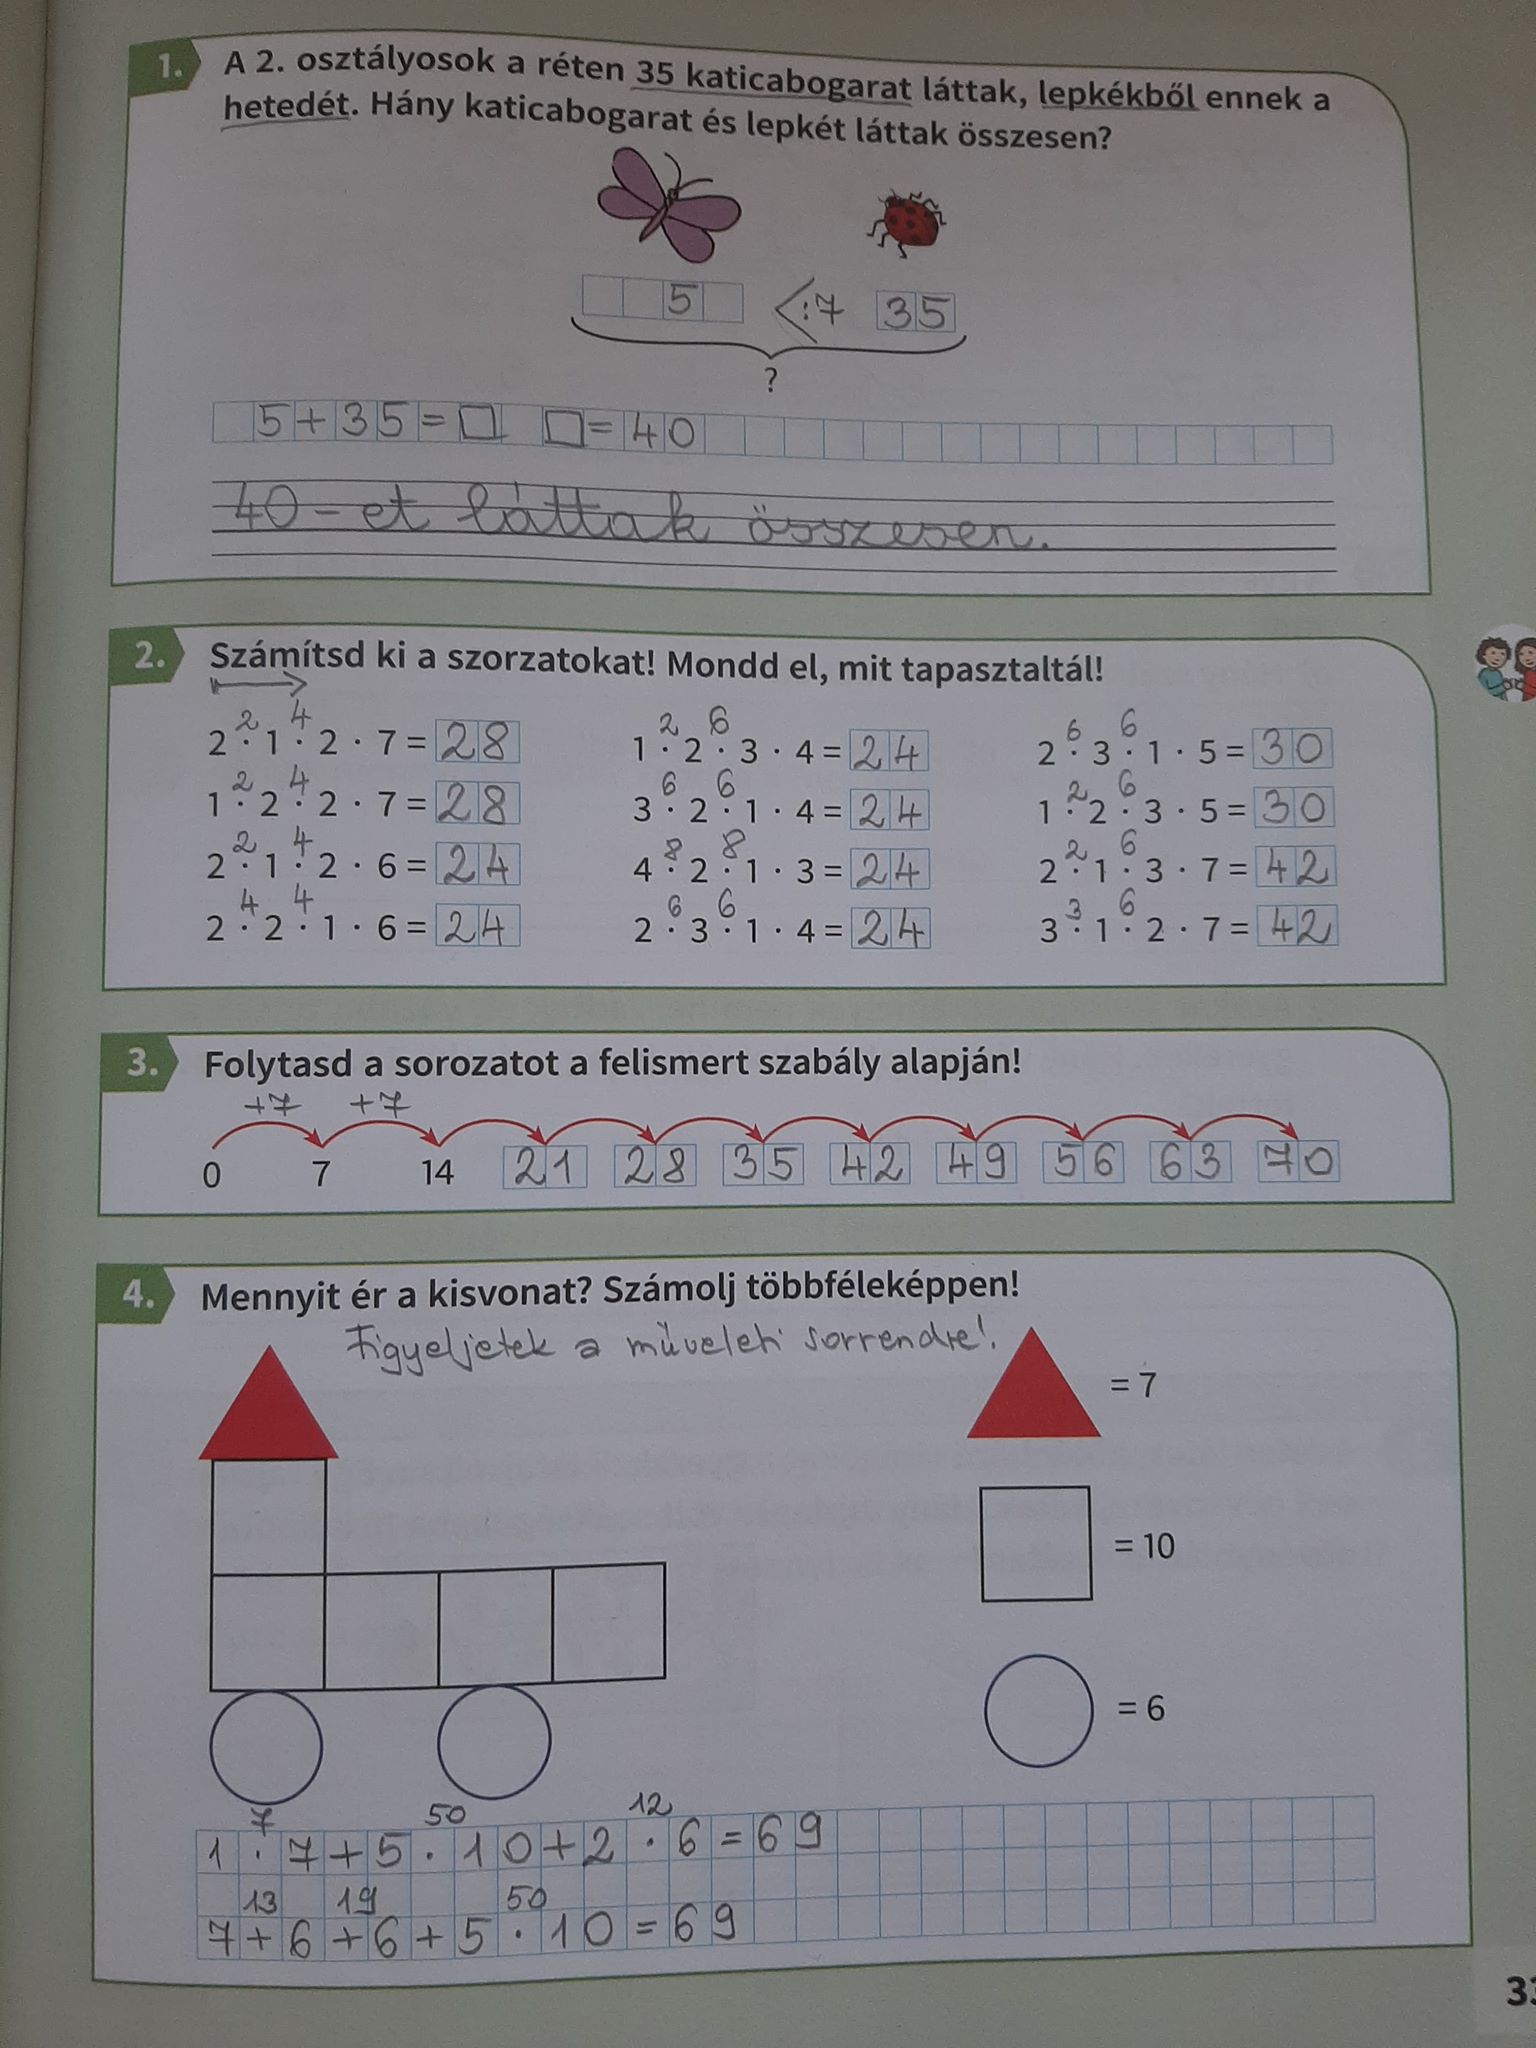 1. A 2. osztályosok a réten 35 katicabogarat láttak, lepkékből ennek a
hetedét. Hány katicabogarat és lepkét láttak összesen?
5 <:7 35
?
5+35=□ □=40
40-et láttak összesen.
2. Számítsd ki a szorzatokat! Mondd el, mit tapasztaltál!
2 4 2 6 6 6
2 · 1 · 2 · 7 = 28 1 · 2 · 3 · 4 = 24 2 · 3 · 1 · 5 = 30
2 4 6 6 2 6
1 · 2 · 2 · 7 = 28 3 · 2 · 1 · 4 = 24 1 · 2 · 3 · 5 = 30
2 4 8 8 2 6
2 · 1 · 2 · 6 = 24 4 · 2 · 1 · 3 = 24 2 · 1 · 3 · 7 = 42
4 4 6 6 3 6
2 · 2 · 1 · 6 = 24 2 · 3 · 1 · 4 = 24 3 · 1 · 2 · 7 = 42
3. Folytasd a sorozatot a felismert szabály alapján!
+7 +7
0 7 14 21 28 35 42 49 56 63 70
4. Mennyit ér a kisvonat? Számolj többféleképpen!
Figyeljetek a műveleti sorrendre!
= 7
= 10
= 6
7 50 12
1 · 7 + 5 · 10 + 2 · 6 = 69
13 19 50
7 + 6 + 6 + 5 · 10 = 69